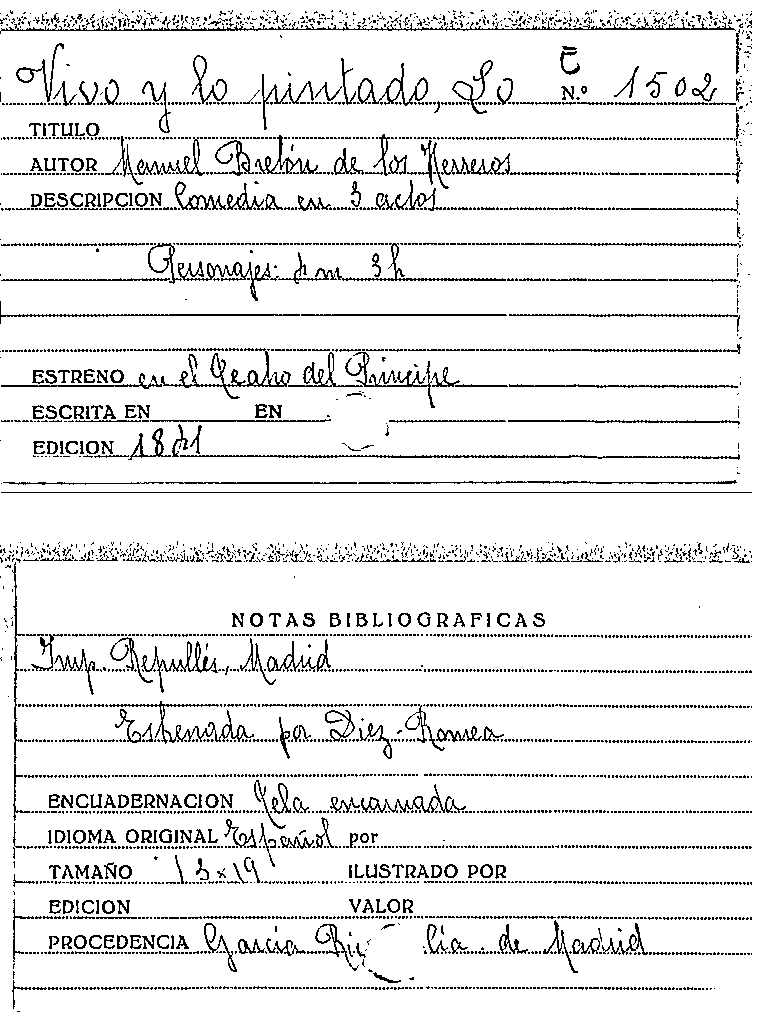 C̅
Vivo y lo pintado, Lo N.º 1502
TITULO
AUTOR Manuel Bretón de los Herreros
DESCRIPCION Comedia en 3 actos
Personajes: 4 m 3 h
ESTRENO en el Teatro del Principe
ESCRITA EN EN
EDICION 1841
NOTAS BIBLIOGRAFICAS
Imp. Repullés, Madrid
Estrenada por Diez-Romea
ENCUADERNACION Tela encarnada
IDIOMA ORIGINAL Español por
TAMAÑO 13x19 ILUSTRADO POR
EDICION VALOR
PROCEDENCIA García Ri lía. de Madrid